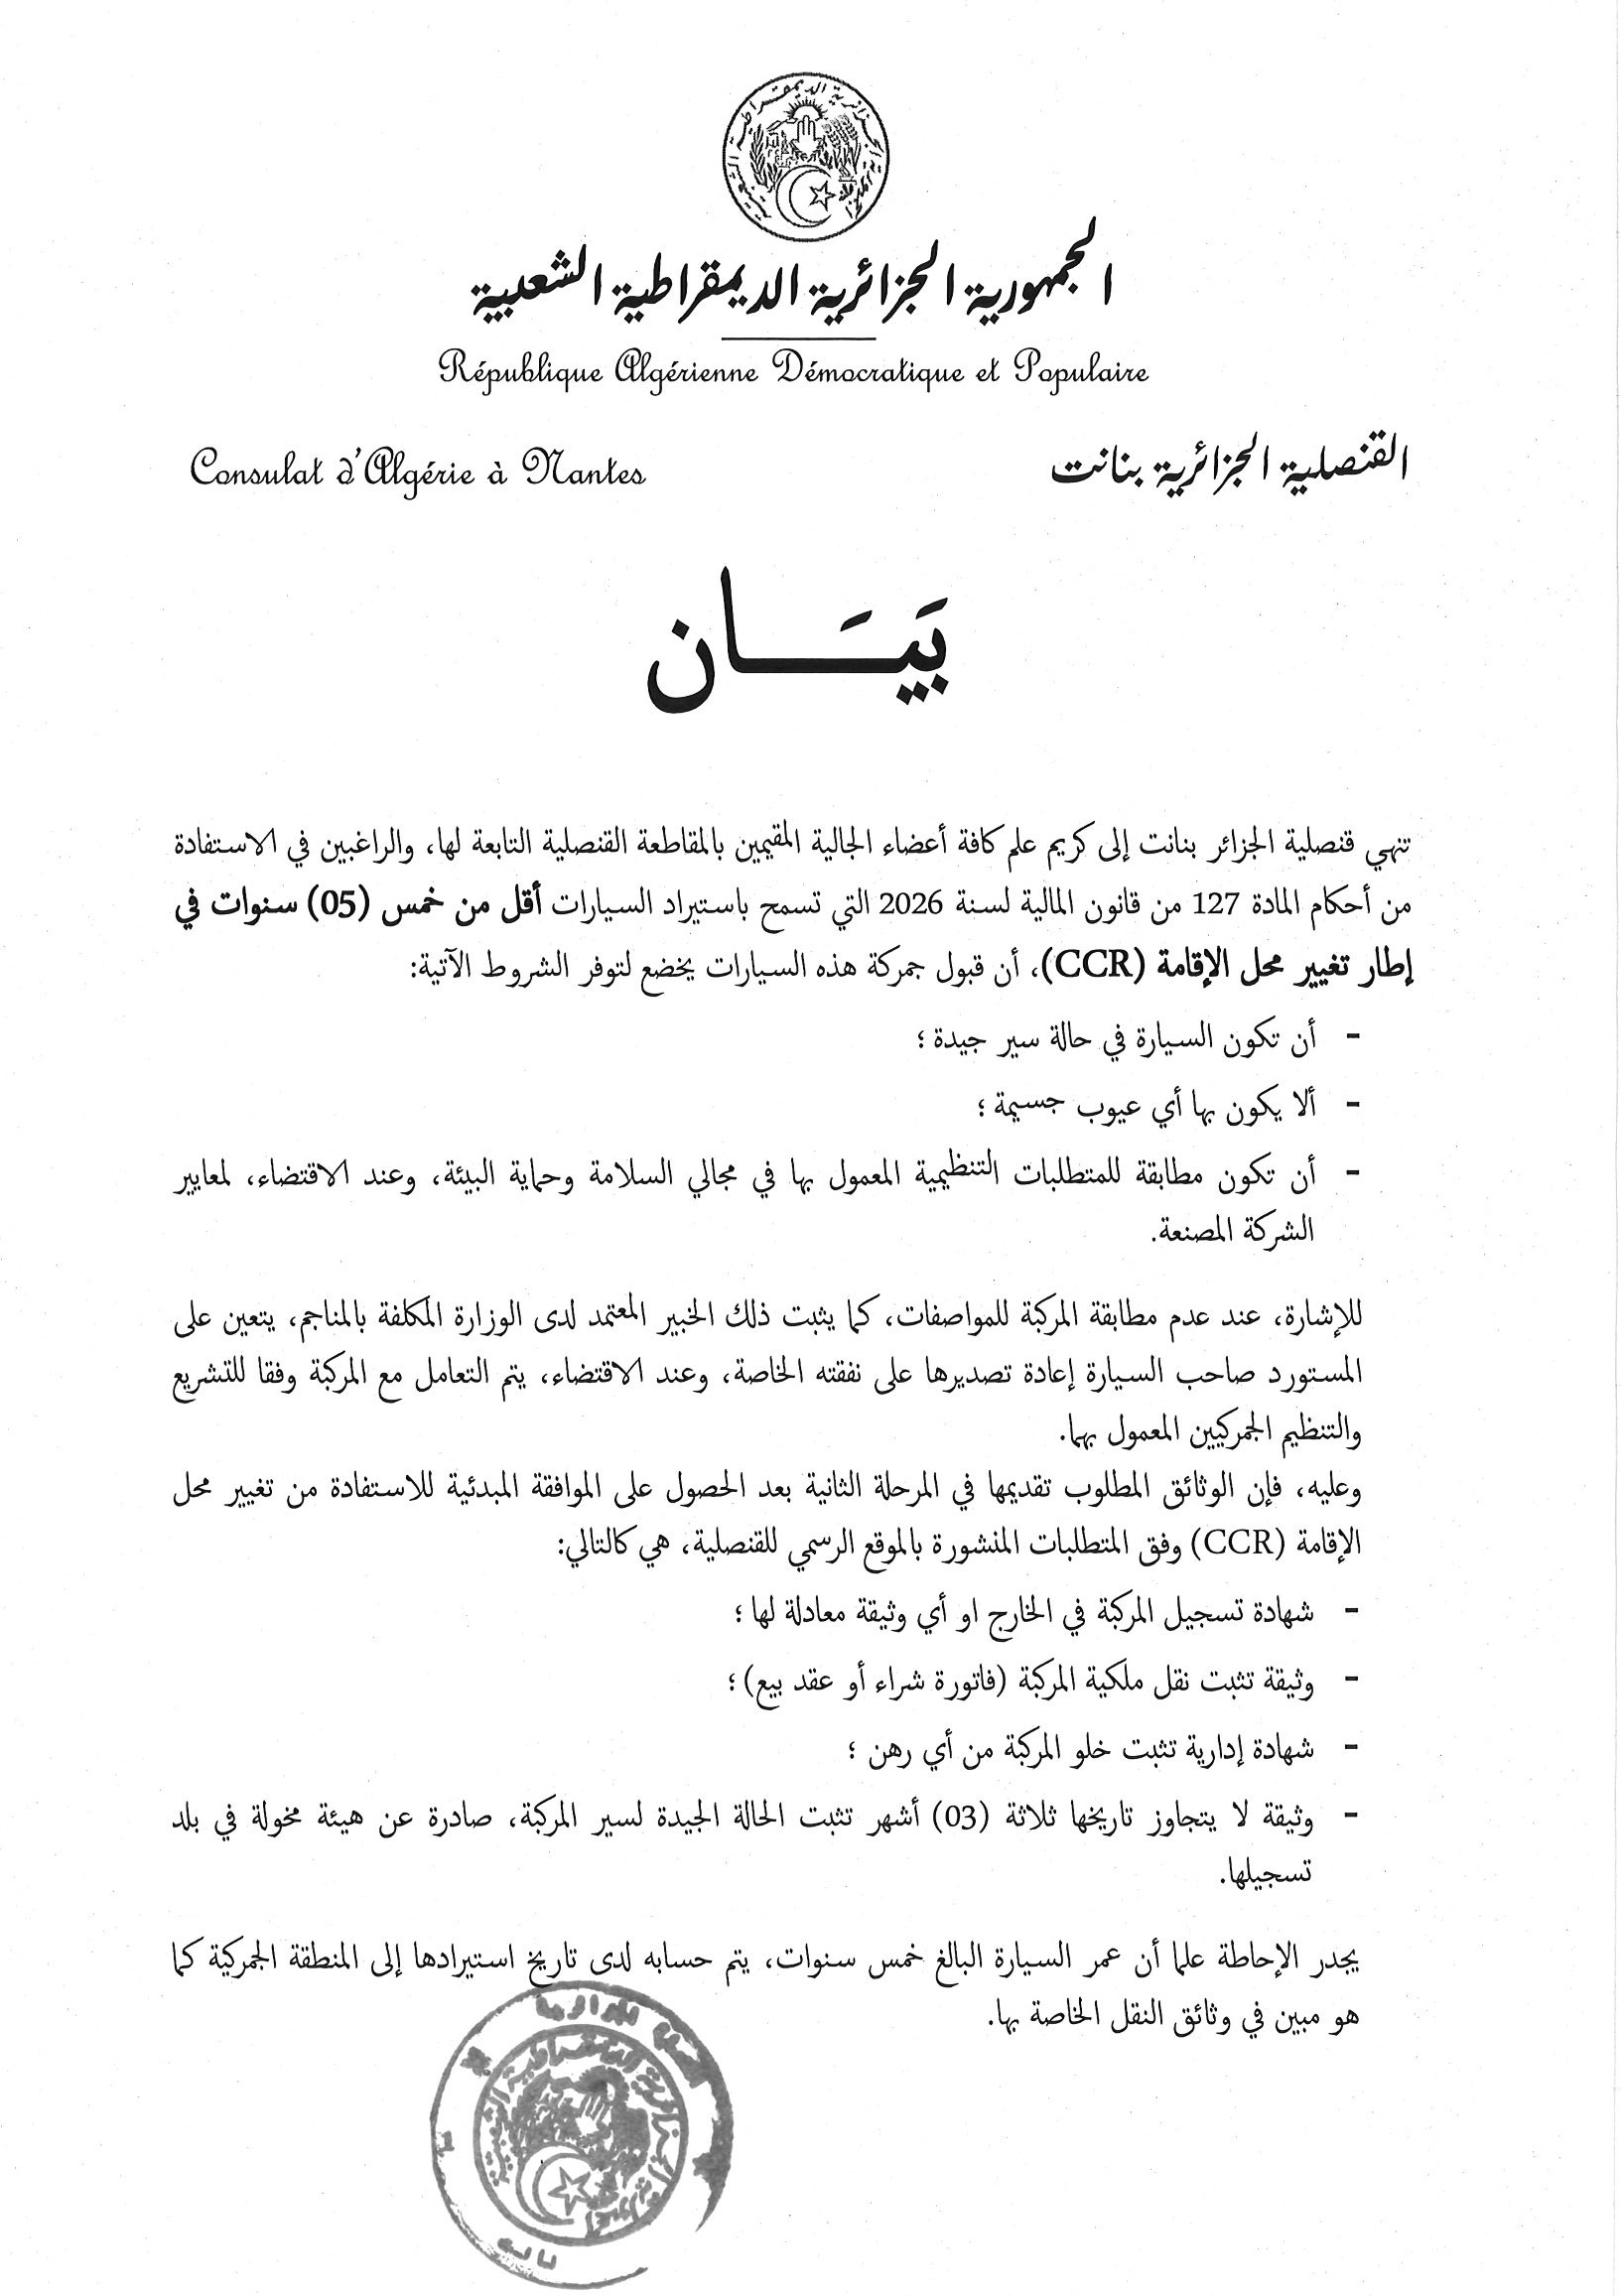 الجمهورية الجزائرية الديمقراطية الشعبية
République Algérienne Démocratique et Populaire
القنصلية الجزائرية بنانت
Consulat d'Algérie à Nantes
بَيَـــان
تنهي قنصلية الجزائر بنانت إلى كريم علم كافة أعضاء الجالية المقيمين بالمقاطعة القنصلية التابعة لها، والراغبين في الاستفادة
من أحكام المادة 127 من قانون المالية لسنة 2026 التي تسمح باستيراد السيارات أقل من خمس (05) سنوات في
إطار تغيير محل الإقامة (CCR)، أن قبول جمركة هذه السيارات يخضع لتوفر الشروط الآتية:
- أن تكون السيارة في حالة سير جيدة ؛
- ألا يكون بها أي عيوب جسيمة ؛
- أن تكون مطابقة للمتطلبات التنظيمية المعمول بها في مجالي السلامة وحماية البيئة، وعند الاقتضاء، لمعايير
الشركة المصنعة.
للإشارة، عند عدم مطابقة المركبة للمواصفات، كما يثبت ذلك الخبير المعتمد لدى الوزارة المكلفة بالمناجم، يتعين على
المستورد صاحب السيارة إعادة تصديرها على نفقته الخاصة، وعند الاقتضاء، يتم التعامل مع المركبة وفقا للتشريع
والتنظيم الجمركيين المعمول بهما.
وعليه، فإن الوثائق المطلوب تقديمها في المرحلة الثانية بعد الحصول على الموافقة المبدئية للاستفادة من تغيير محل
الإقامة (CCR) وفق المتطلبات المنشورة بالموقع الرسمي للقنصلية، هي كالتالي:
- شهادة تسجيل المركبة في الخارج او أي وثيقة معادلة لها ؛
- وثيقة تثبت نقل ملكية المركبة (فاتورة شراء أو عقد بيع)؛
- شهادة إدارية تثبت خلو المركبة من أي رهن ؛
- وثيقة لا يتجاوز تاريخها ثلاثة (03) أشهر تثبت الحالة الجيدة لسير المركبة، صادرة عن هيئة مخولة في بلد
تسجيلها.
يجدر الإحاطة علما أن عمر السيارة البالغ خمس سنوات، يتم حسابه لدى تاريخ استيرادها إلى المنطقة الجمركية كما
هو مبين في وثائق النقل الخاصة بها.